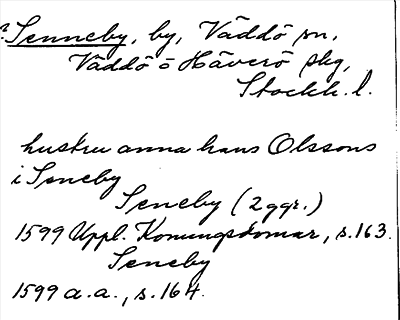 Senneby, by, Väddö sn,
Väddö o Häverö skg,
Stockh. l.
hustru anna hans Olssons
i Seneby
Seneby (2 ggr.)
1599 Uppl. Konungsdomar, s. 163.
Seneby
1599 a. a., s. 164.